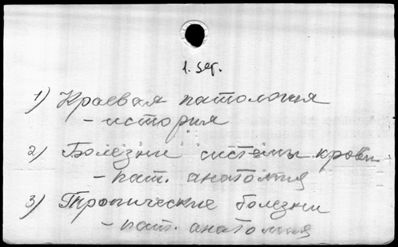 1. sep.
1) Краевая патология
- история
2) Болезни системы крови
- пат. анатомия
3) Тропические болезни
- пат. анатомия